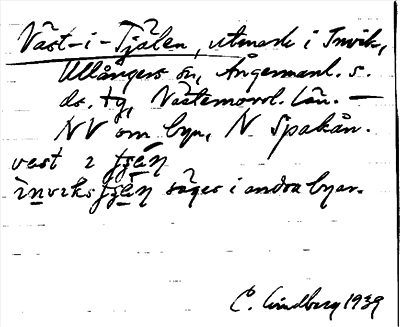 Väst-i-Tjälen, utmark i Invik,
Ullångers sn, Ångermanl. s.
ds. tg, Västernorrl. län. —
NV om byn, N. Spakån.
vest i
säges i andra byar.
C. Lindberg 1939